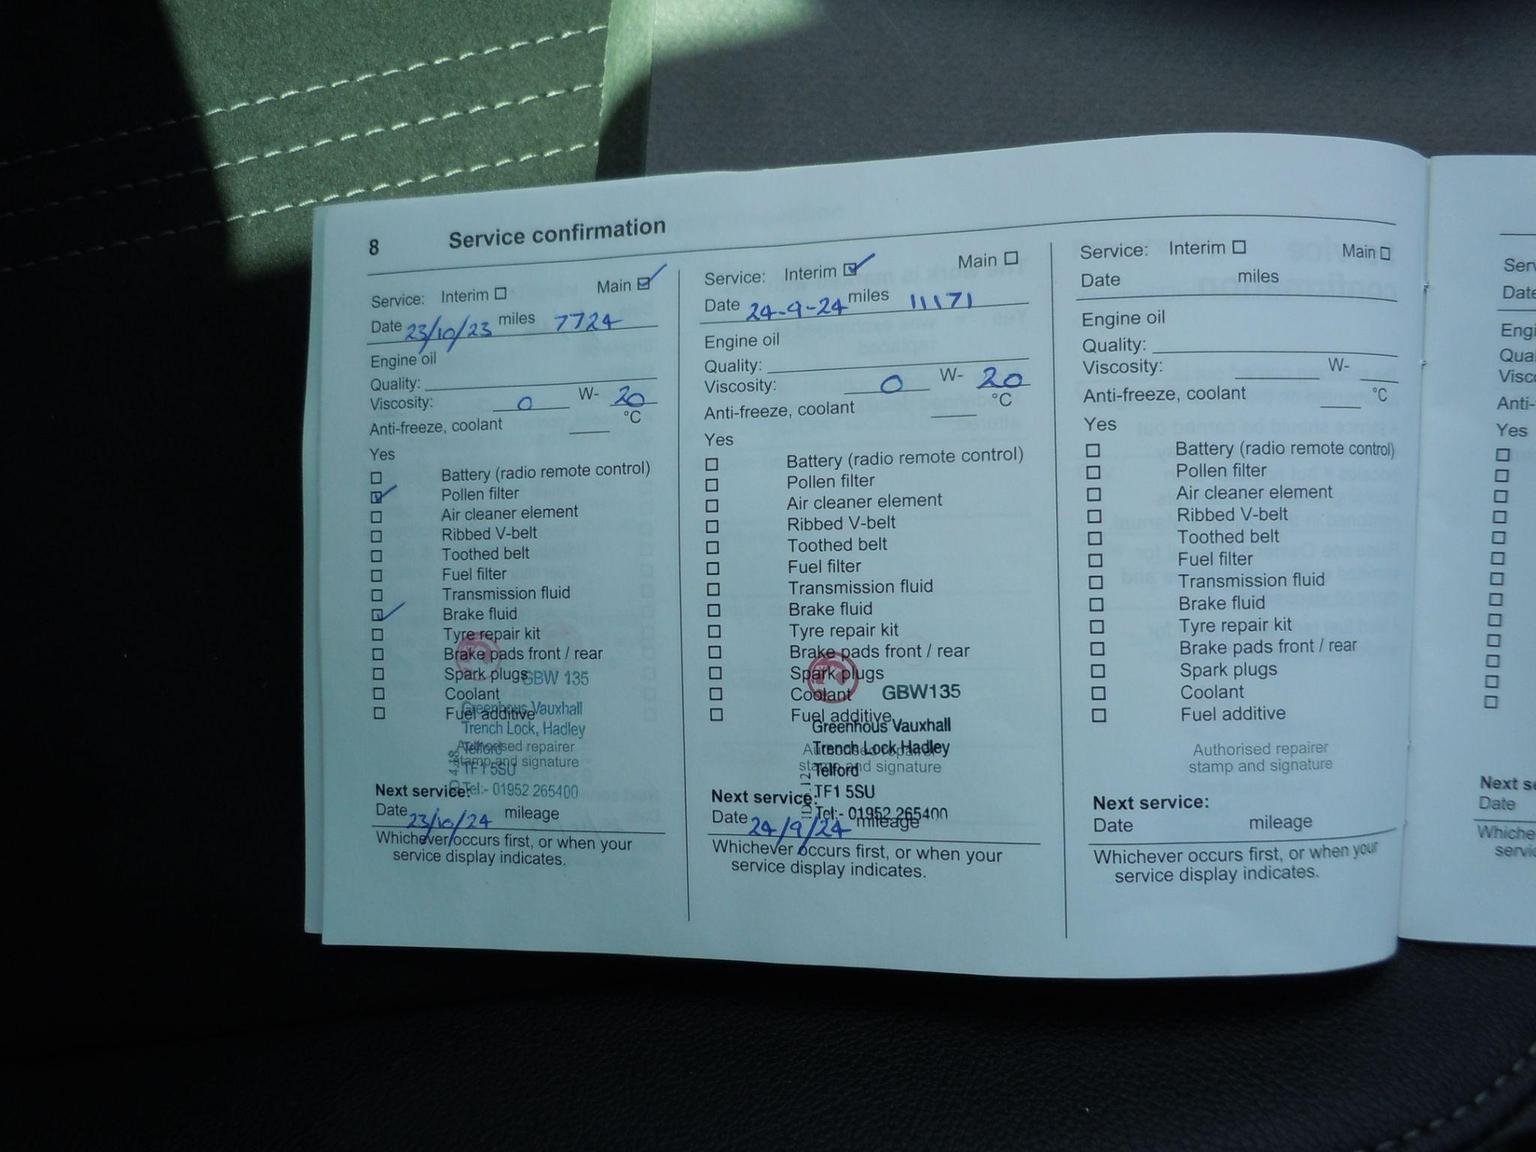 8 Service confirmation
Service: Interim Main
Date 23/10/23 miles 7724
Engine oil
Quality:
Viscosity: 0 W- 20
Anti-freeze, coolant °C
Yes
Battery (radio remote control)
Pollen filter
Air cleaner element
Ribbed V-belt
Toothed belt
Fuel filter
Transmission fluid
Brake fluid
Tyre repair kit
Brake pads front / rear
Spark plugs
GBW 135
Coolant
Fuel additive
Greenhous Vauxhall
Trench Lock, Hadley
Telford
TF1 5SU
Tel:- 01952 265400
Authorised repairer
stamp and signature
Next service:
Date 23/10/24 mileage
Whichever occurs first, or when your
service display indicates.
Service: Interim Main
Date 24-9-24 miles 11171
Engine oil
Quality:
Viscosity: 0 W- 20
Anti-freeze, coolant °C
Yes
Battery (radio remote control)
Pollen filter
Air cleaner element
Ribbed V-belt
Toothed belt
Fuel filter
Transmission fluid
Brake fluid
Tyre repair kit
Brake pads front / rear
Spark plugs
Coolant
GBW135
Fuel additive
Greenhous Vauxhall
Trench Lock Hadley
Telford
TF1 5SU
Tel:- 01952 265400
Authorised repairer
stamp and signature
Next service:
Date 24/9/24 mileage
Whichever occurs first, or when your
service display indicates.
Service: Interim Main
Date miles
Engine oil
Quality:
Viscosity: W-
Anti-freeze, coolant °C
Yes
Battery (radio remote control)
Pollen filter
Air cleaner element
Ribbed V-belt
Toothed belt
Fuel filter
Transmission fluid
Brake fluid
Tyre repair kit
Brake pads front / rear
Spark plugs
Coolant
Fuel additive
Authorised repairer
stamp and signature
Next service:
Date mileage
Whichever occurs first, or when your
service display indicates.
Date
Yes
Date